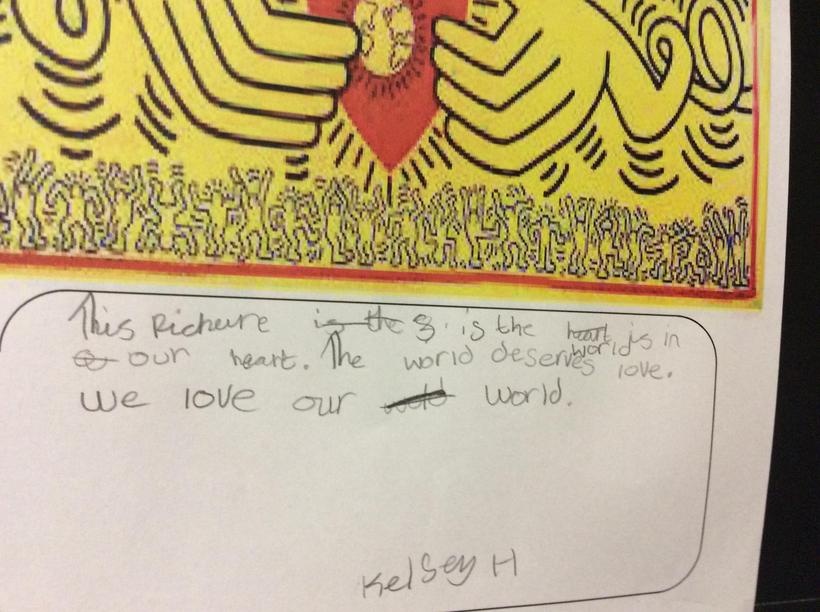 This Picheure is the 3. is the heart world is in
our heart. The world deserves love.
we love our world.
Kelsey H